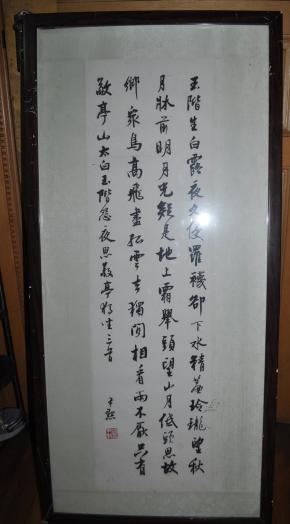 玉階生白露夜久侵羅襪卻下水精簾玲瓏望秋
月牀前明月光疑是地上霜舉頭望山月低頭思故
鄉眾鳥高飛盡孤雲去獨閒相看兩不厭只有
敬亭山太白玉階怨夜思敬亭獨坐三首
尹默